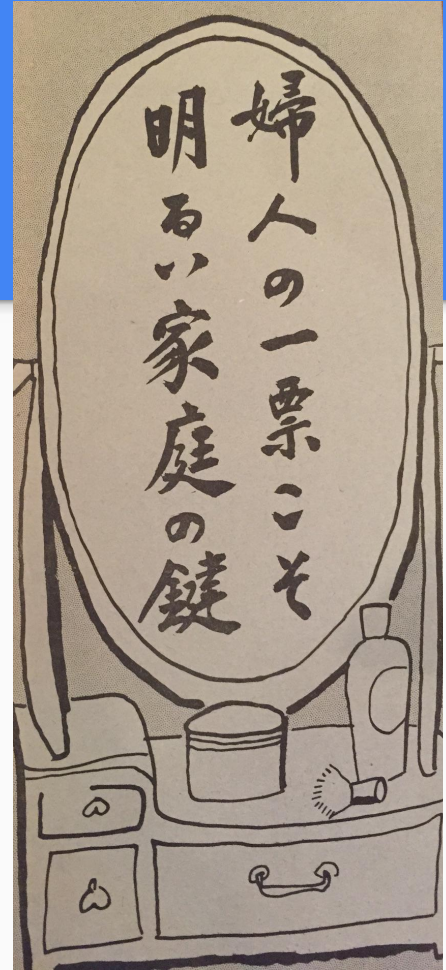 婦人の一票こそ
明るい家庭の鍵